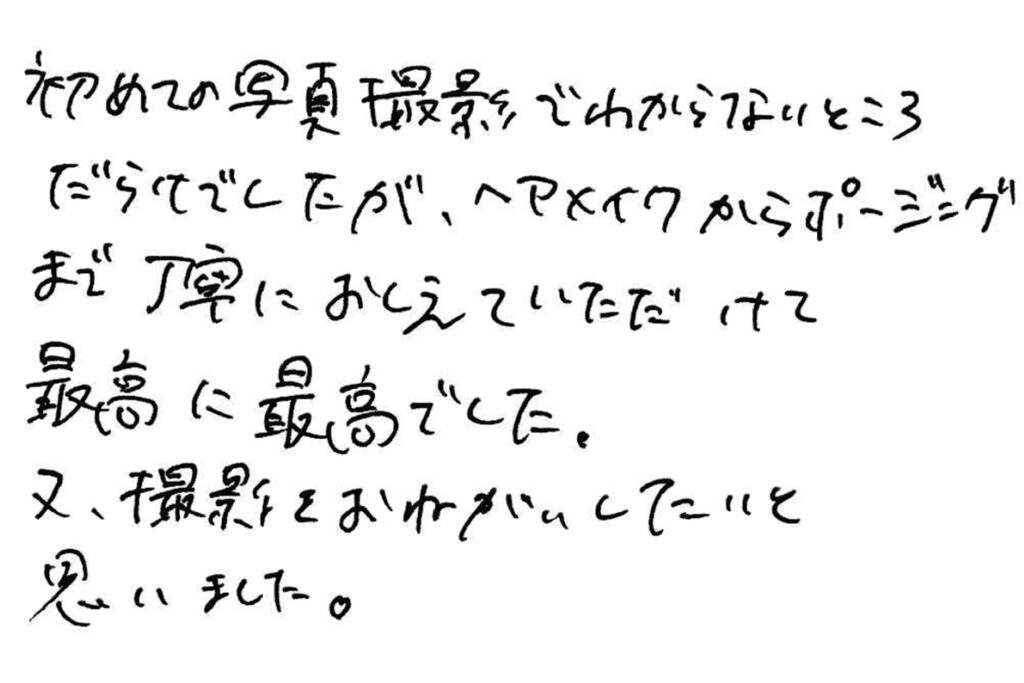 初めての写真撮影でわからないところ
だらけでしたが、ヘアメイクからポージング
まで丁寧におしえていただけて
最高に最高でした.
又、撮影をおねがいしたいと
思いました。